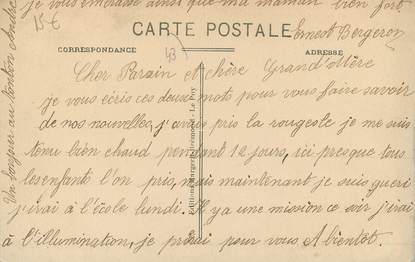 je vous embrasse ainsi que ma maman bien fort
Ernest Bergeron
15€
CARTE POSTALE
CORRESPONDANCE
43
ADRESSE
Cher Parain et chère Grand'Mère
je vous écris ces deux mots pour vous faire savoir
de nos nouvelles, j'amis pris la rougeole je me suis
tenu bien chaud pendant 12 jours, ici presque tous
les enfants l'on pris, mais maintenant je suis gueri
j'irai à l'école lundi. Il y a une mission ce soir j'irai
à l'illumination, je prirai pour vous A bientôt.
Un bonjour au tonton
Editions Margerit-Brémond - Le Puy